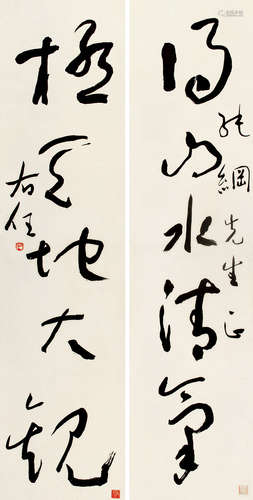 得山水清氣
綱先生正
極天地大觀
右任